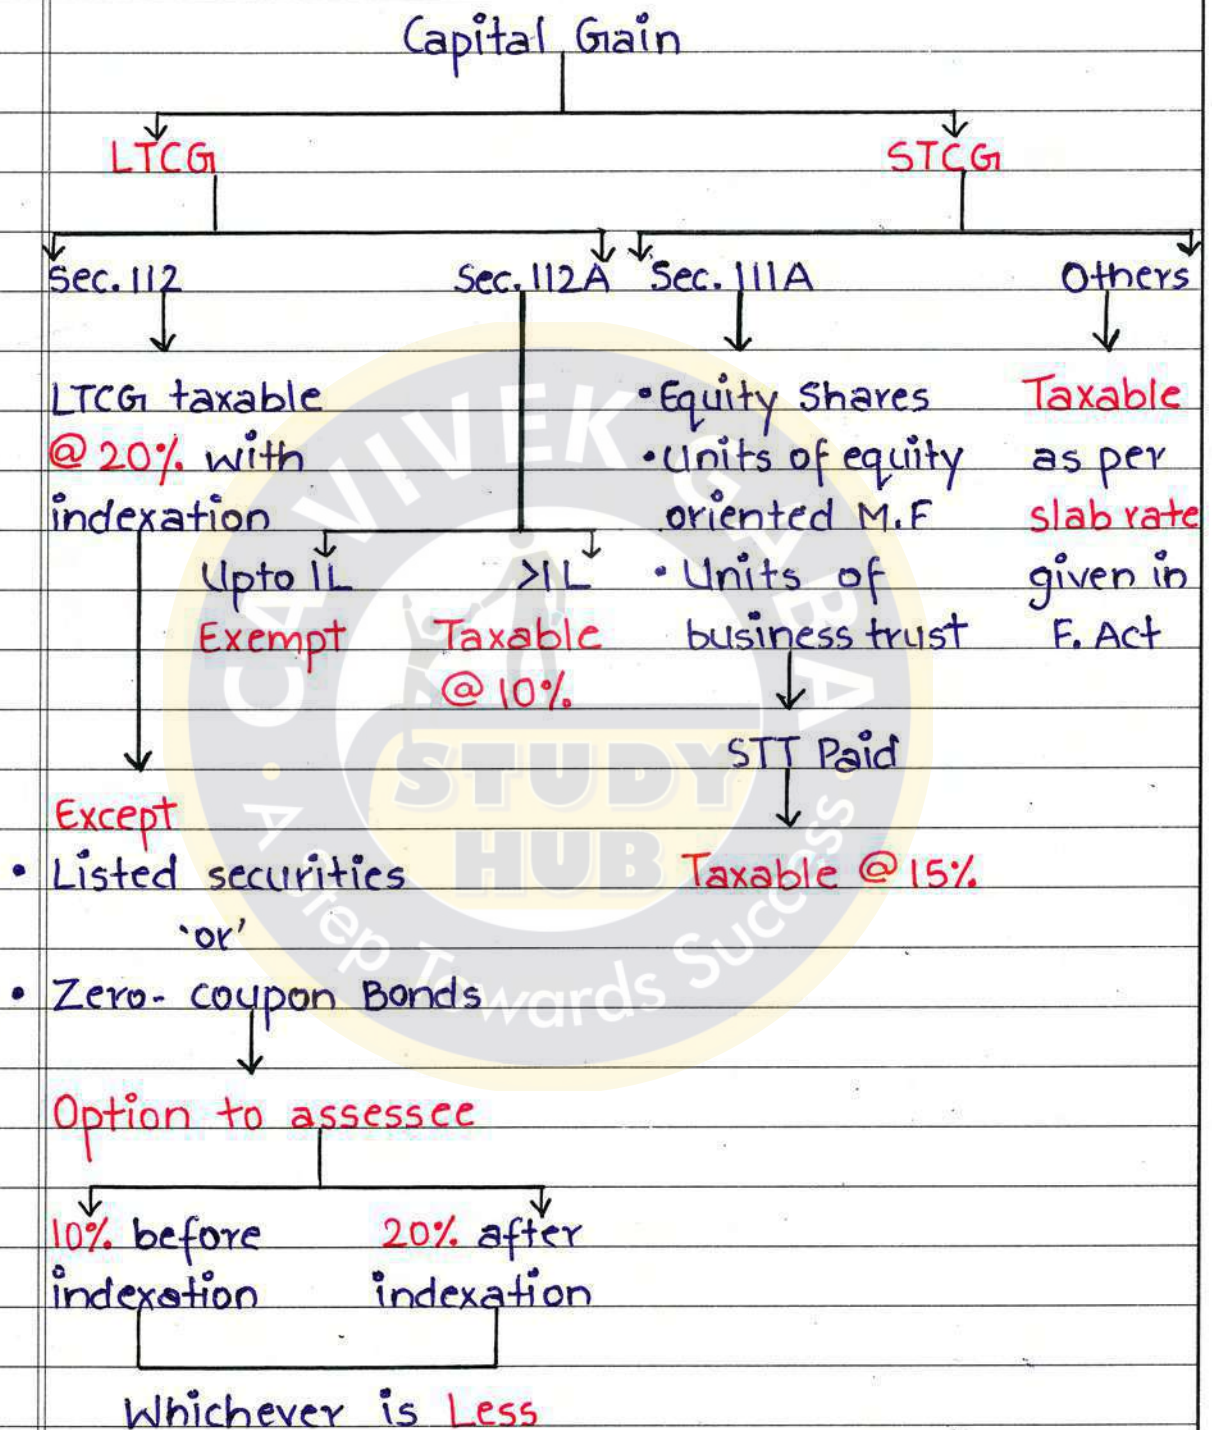 Capital Gain
LTCG
STCG
Sec. 112
Sec. 112A
Sec. 111A
Others
LTCG taxable
@ 20% with
indexation
Upto 1L
Exempt
>1L
Taxable
@ 10%
• Equity Shares
• Units of equity
oriented M.F
• Units of
business trust
STT Paid
Taxable @ 15%
Taxable
as per
slab rate
given in
F. Act
Except
• Listed securities
'or'
• Zero- coupon Bonds
Option to assessee
10% before
indexation
20% after
indexation
Whichever is Less
CA VIVEK GABA
STUDY
HUB
A Step Towards Success